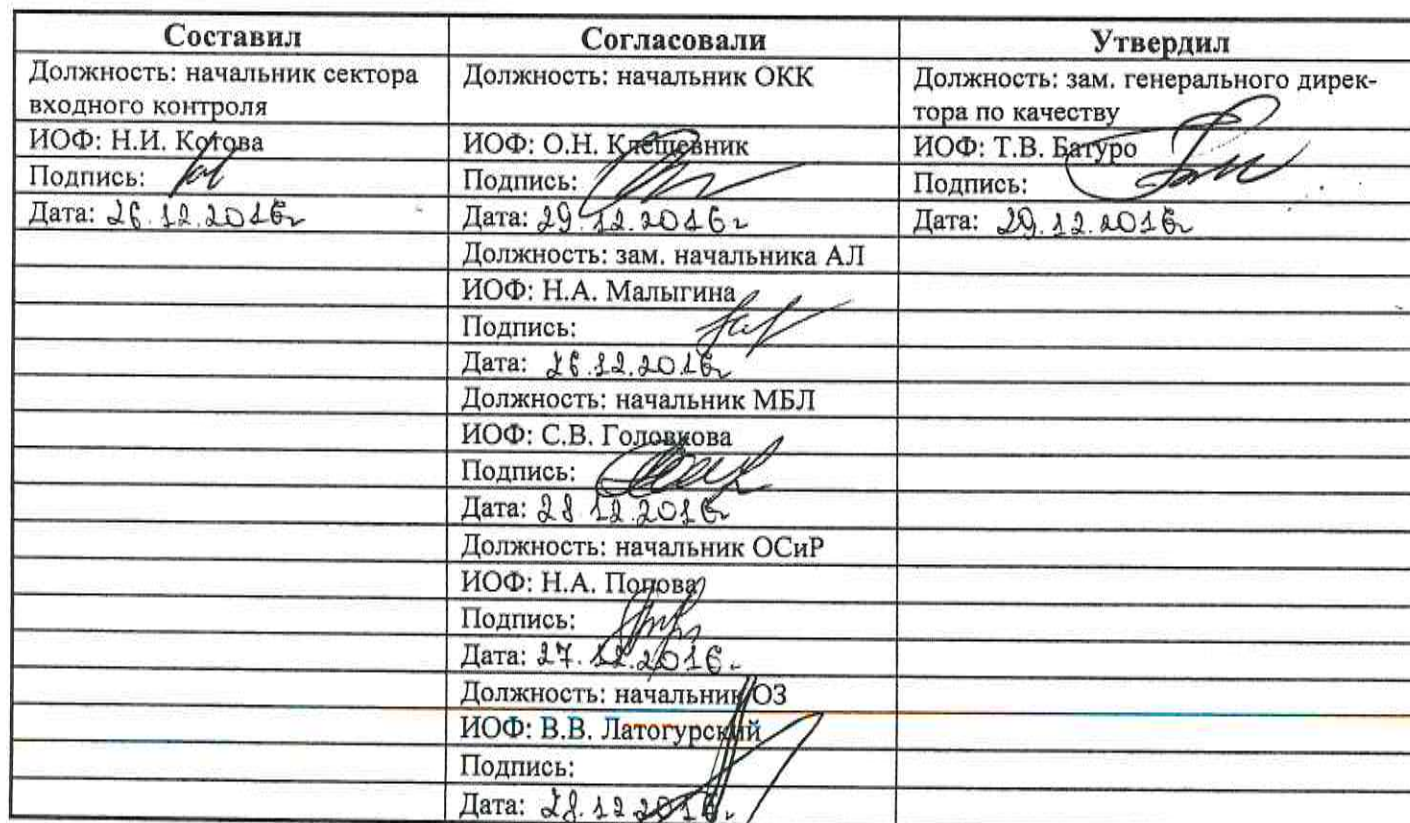 Составил Согласовали Утвердил
Должность: начальник сектора Должность: начальник ОКК Должность: зам. генерального дирек-
входного контроля тора по качеству
ИОФ: Н.И. Котова ИОФ: О.Н. Клещевник ИОФ: Т.В. Батуро
Подпись: Подпись: Подпись:
Дата: 26.12.2016г Дата: 29.12.2016г Дата: 29.12.2016г
Должность: зам. начальника АЛ
ИОФ: Н.А. Малыгина
Подпись:
Дата: 26.12.2016г
Должность: начальник МБЛ
ИОФ: С.В. Головкова
Подпись:
Дата: 28.12.2016г
Должность: начальник ОСиР
ИОФ: Н.А. Попова
Подпись:
Дата: 27.12.2016г
Должность: начальник ОЗ
ИОФ: В.В. Латогурский
Подпись:
Дата: 28.12.2016г.